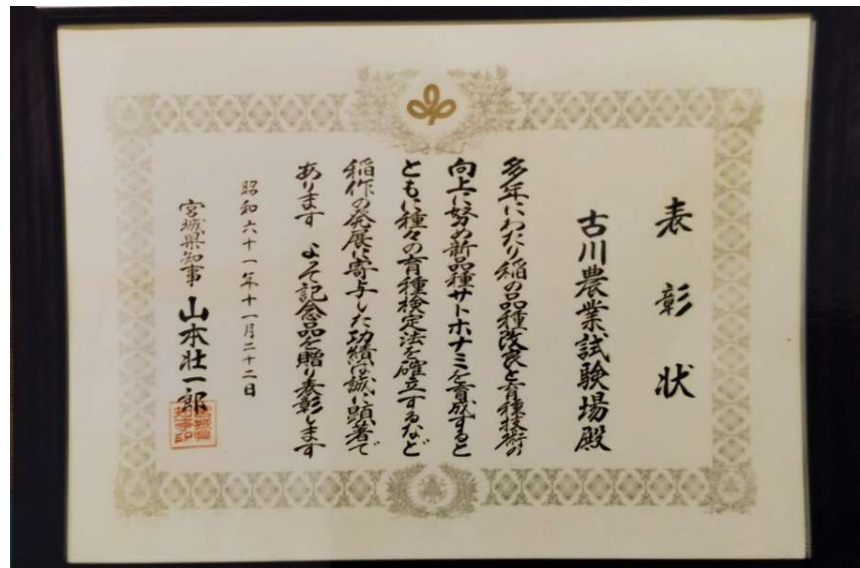 表彰状
古川農業試験場殿
多年にわたり稲の品種改良と育種技術の
向上に努め新品種サトホナミを育成すると
ともに種々の育種検定法を確立するなど
稲作の発展に寄与した功績は誠に顕著で
あります よって記念品を贈り表彰します
昭和六十一年十一月二十二日
宮城県知事 山本壮一郎
宮城県知事印